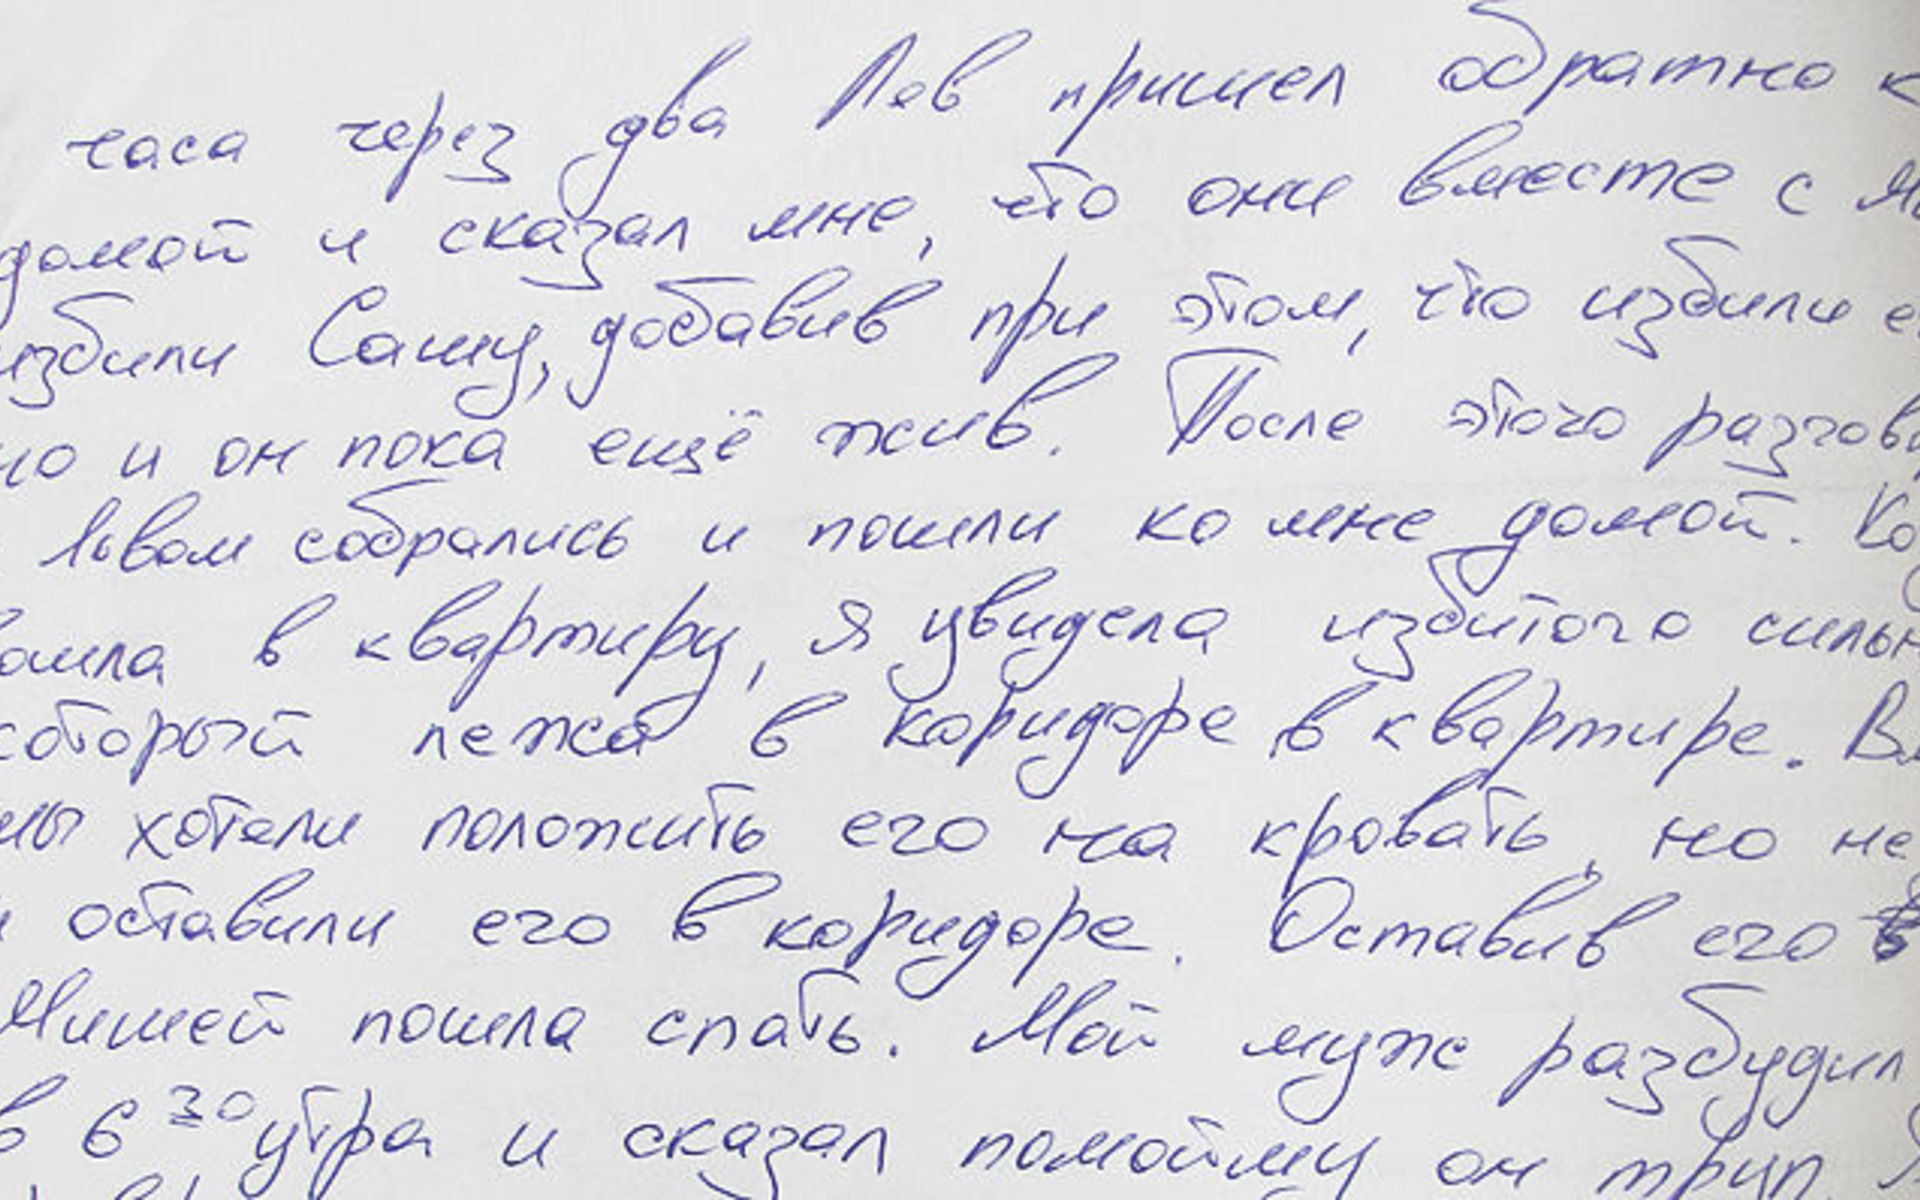 часа через два Лев пришел обратно к
домой и сказал мне, что они вместе с
избили Сашу, добавив при этом, что избили
но и он пока ещё жив. После этого разгов
Львом собрались и пошли ко мне домой. Ко
ошла в квартиру, я увидела избитого сильн
который лежал в коридоре в квартире. Вм
мы хотели положить его на кровать, но не
и оставили его в коридоре. Оставив его в
Мишей пошла спать. Мой муж разбудил
в 6 30 утра и сказал помойму он труп